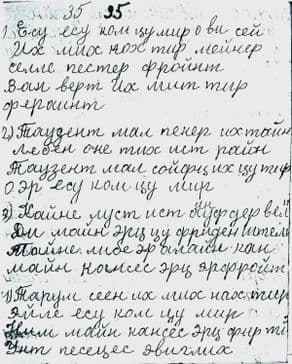 35 35
1) Есу есу ком цу мир о ви сей
Их мих нох тир мейнер
селле пестер фройнт
Ван верт их мит тир
ферайнт
2) Таузент мал пенер их тайн
Лебен оне тих ист райн
Таузент мал сойфц их цу тир
О эр есу ком цу мир
3) Кайне луст ист ауф дер вел
Ди майн эрц цу фриден штел
Тайне либе эр алайн кан
майн ганцес эрц эрфройт
4) Тарум сеен их мих нох тир
эйле есу ком цу мир
Ним майн ганцес эрц фир ти
Унт песецес эвиглих